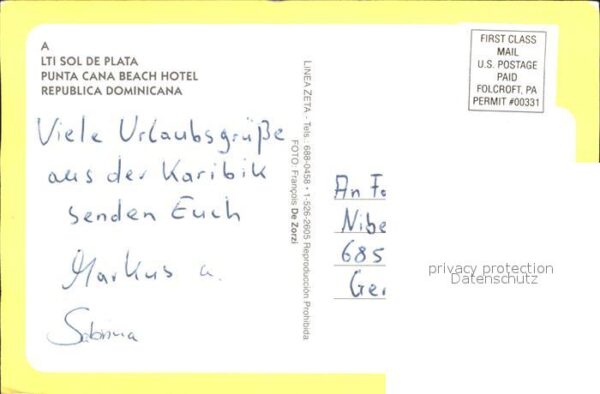 A
LTI SOL DE PLATA
PUNTA CANA BEACH HOTEL
REPUBLICA DOMINICANA
Viele Urlaubsgrüße
aus der Karibik
senden Euch
Markus u.
Sabrina
LINEA ZETA - Tels: 688-0458 • 1-526-2605 Reproducción Prohibida
FOTO: François De Zorzi
FIRST CLASS
MAIL
U.S. POSTAGE
PAID
FOLCROFT, PA
PERMIT #00331
An Fa
Nibe
685
Ger
privacy protection
Datenschutz